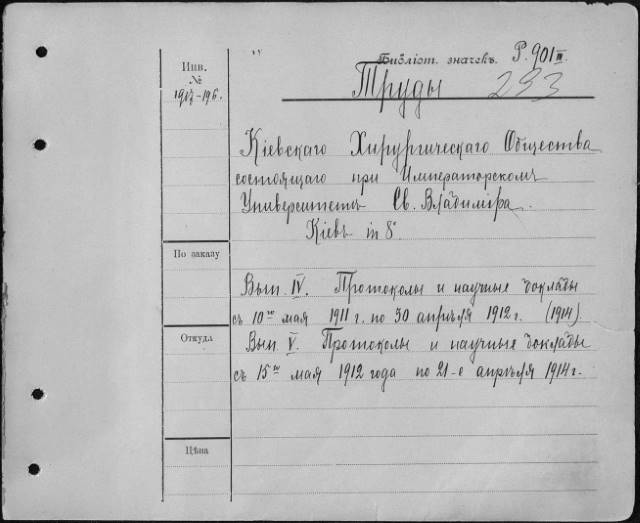 Инв.
№
1917-196.
Библіот. значекъ. Р. 901 III
Труды 293
Кіевскаго Хирургическаго Общества
состоящаго при Императорскомъ
Университетѣ Св. Владиміра.
Кіевъ in 8°
По заказу
Вып. IV. Протоколы и научные доклады
съ 10го мая 1911 г. по 30 апрѣля 1912 г. (1914).
Откуда
Вып. V. Протоколы и научные доклады
съ 15го мая 1912 года по 21-е апрѣля 1914 г.
Цѣна